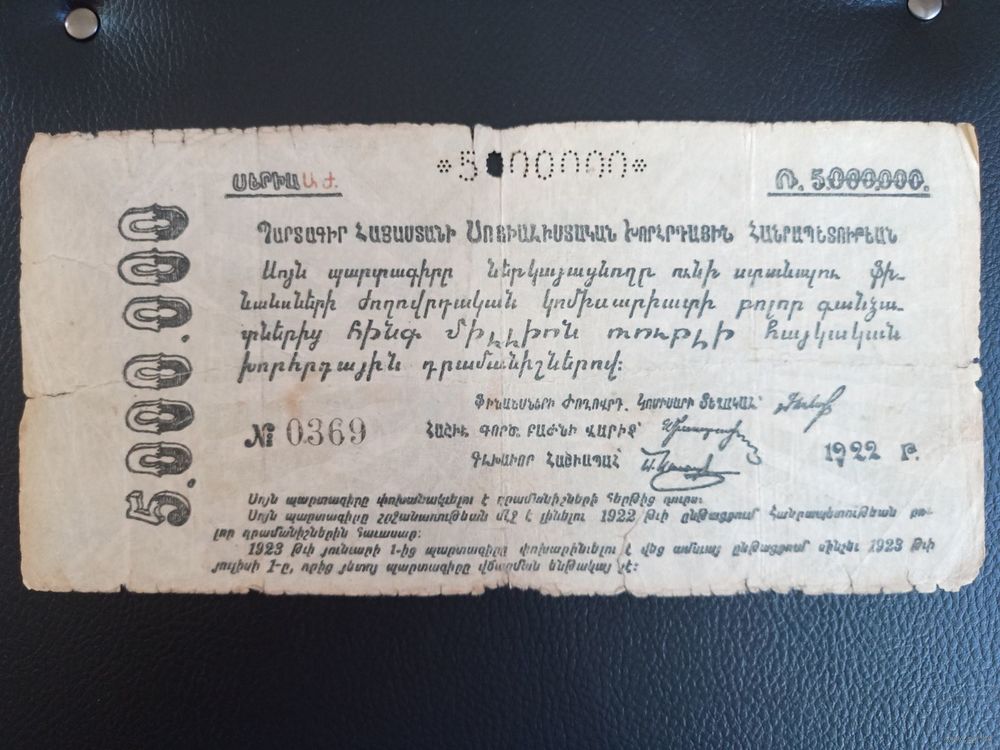 *5 000000*
ՍԵՐԻԱ Ա Ժ.
Ռ. 5.000.000.
5.000.000
ՊԱՐՏԱԳԻՐ ՀԱՅԱՍՏԱՆԻ ՍՈՑԻԱԼԻՍՏԱԿԱՆ ԽՈՐՀՐԴԱՅԻՆ ՀԱՆՐԱՊԵՏՈՒԹԵԱՆ
Սոյն պարտագիրը ներկայացնողը ունի ստանալու ֆի-
նանսների ժողովրդական կոմիսարիատի բոլոր գանձա-
տներից հինգ միլլիոն ռուբլի հայկական
խորհրդային դրամանիշներով:
ՖԻՆԱՆՍՆԵՐԻ ԺՈՂՈՎՐԴ. ԿՈՄԻՍԱՐԻ ՏԵՂԱԿԱԼ՝
№ 0369
ՀԱՇԻՒ. ԳՈՐԾ. ԲԱԺՆԻ ՎԱՐԻՉ՝
1922 Թ.
ԳԼԽԱՒՈՐ ՀԱՇԻԱՊԱՀ՝
Սոյն պարտագիրը փոխանակելու է դրամանիշների հերթից դուրս:
Սոյն պարտագիրը շրջանառութեան մէջ է լինելու 1922 թւի ընթացքում Հանրապետութեան բո-
լոր դրամանիշներին հաւասար:
1923 թւի յունւարի 1-ից պարտագիրը փոխարինելու է վեց ամսւայ ընթացքում մինչեւ 1923 թւի
յուլիսի 1-ը, որից յետոյ պարտագիրը վճարման ենթակայ չէ: